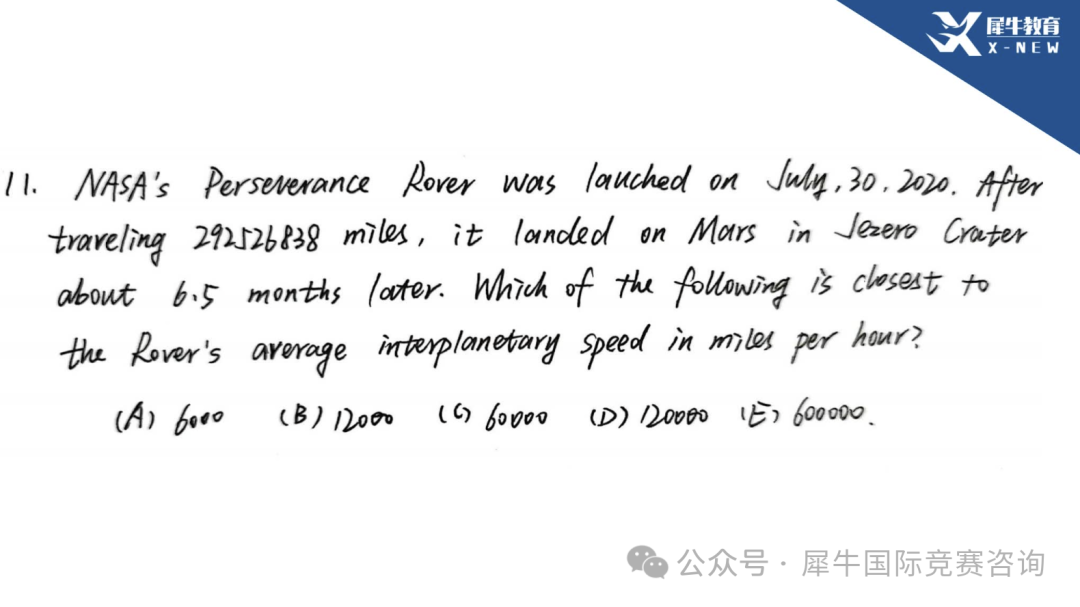 犀牛教育
X-NEW
11. NASA's Perseverance Rover was lauched on July, 30, 2020. After
traveling 292526838 miles, it landed on Mars in Jezero Crater
about 6.5 months later. Which of the following is closest to
the Rover's average interplanetary speed in miles per hour?
(A) 6000 (B) 12000 (C) 60000 (D) 120000 (E) 600000.
公众号 · 犀牛国际竞赛咨询